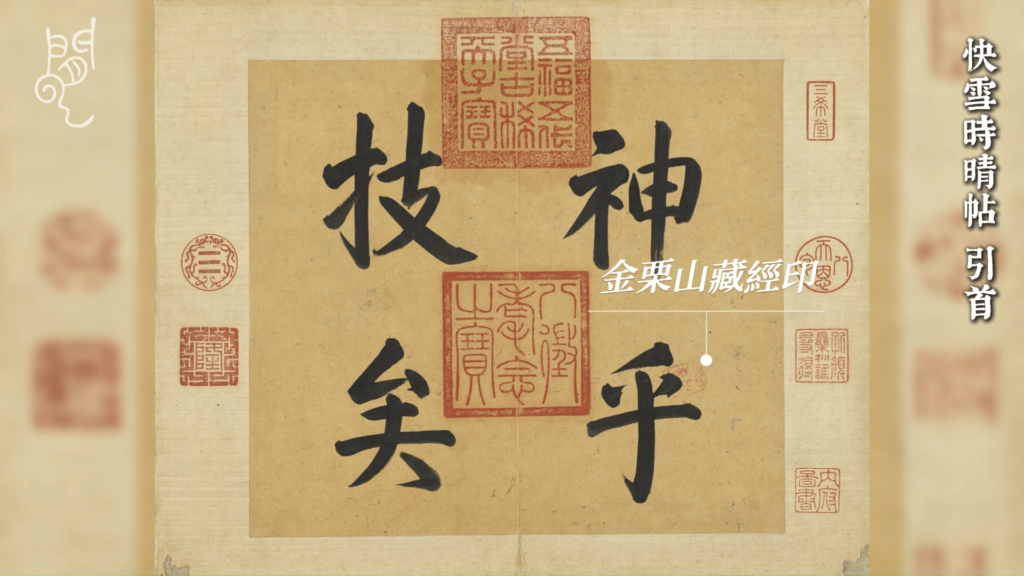 快雪時晴帖 引首
神乎
技矣
金栗山藏經印
五福五代
堂古稀
天子寶
八徵
耄念
之寶
三希堂